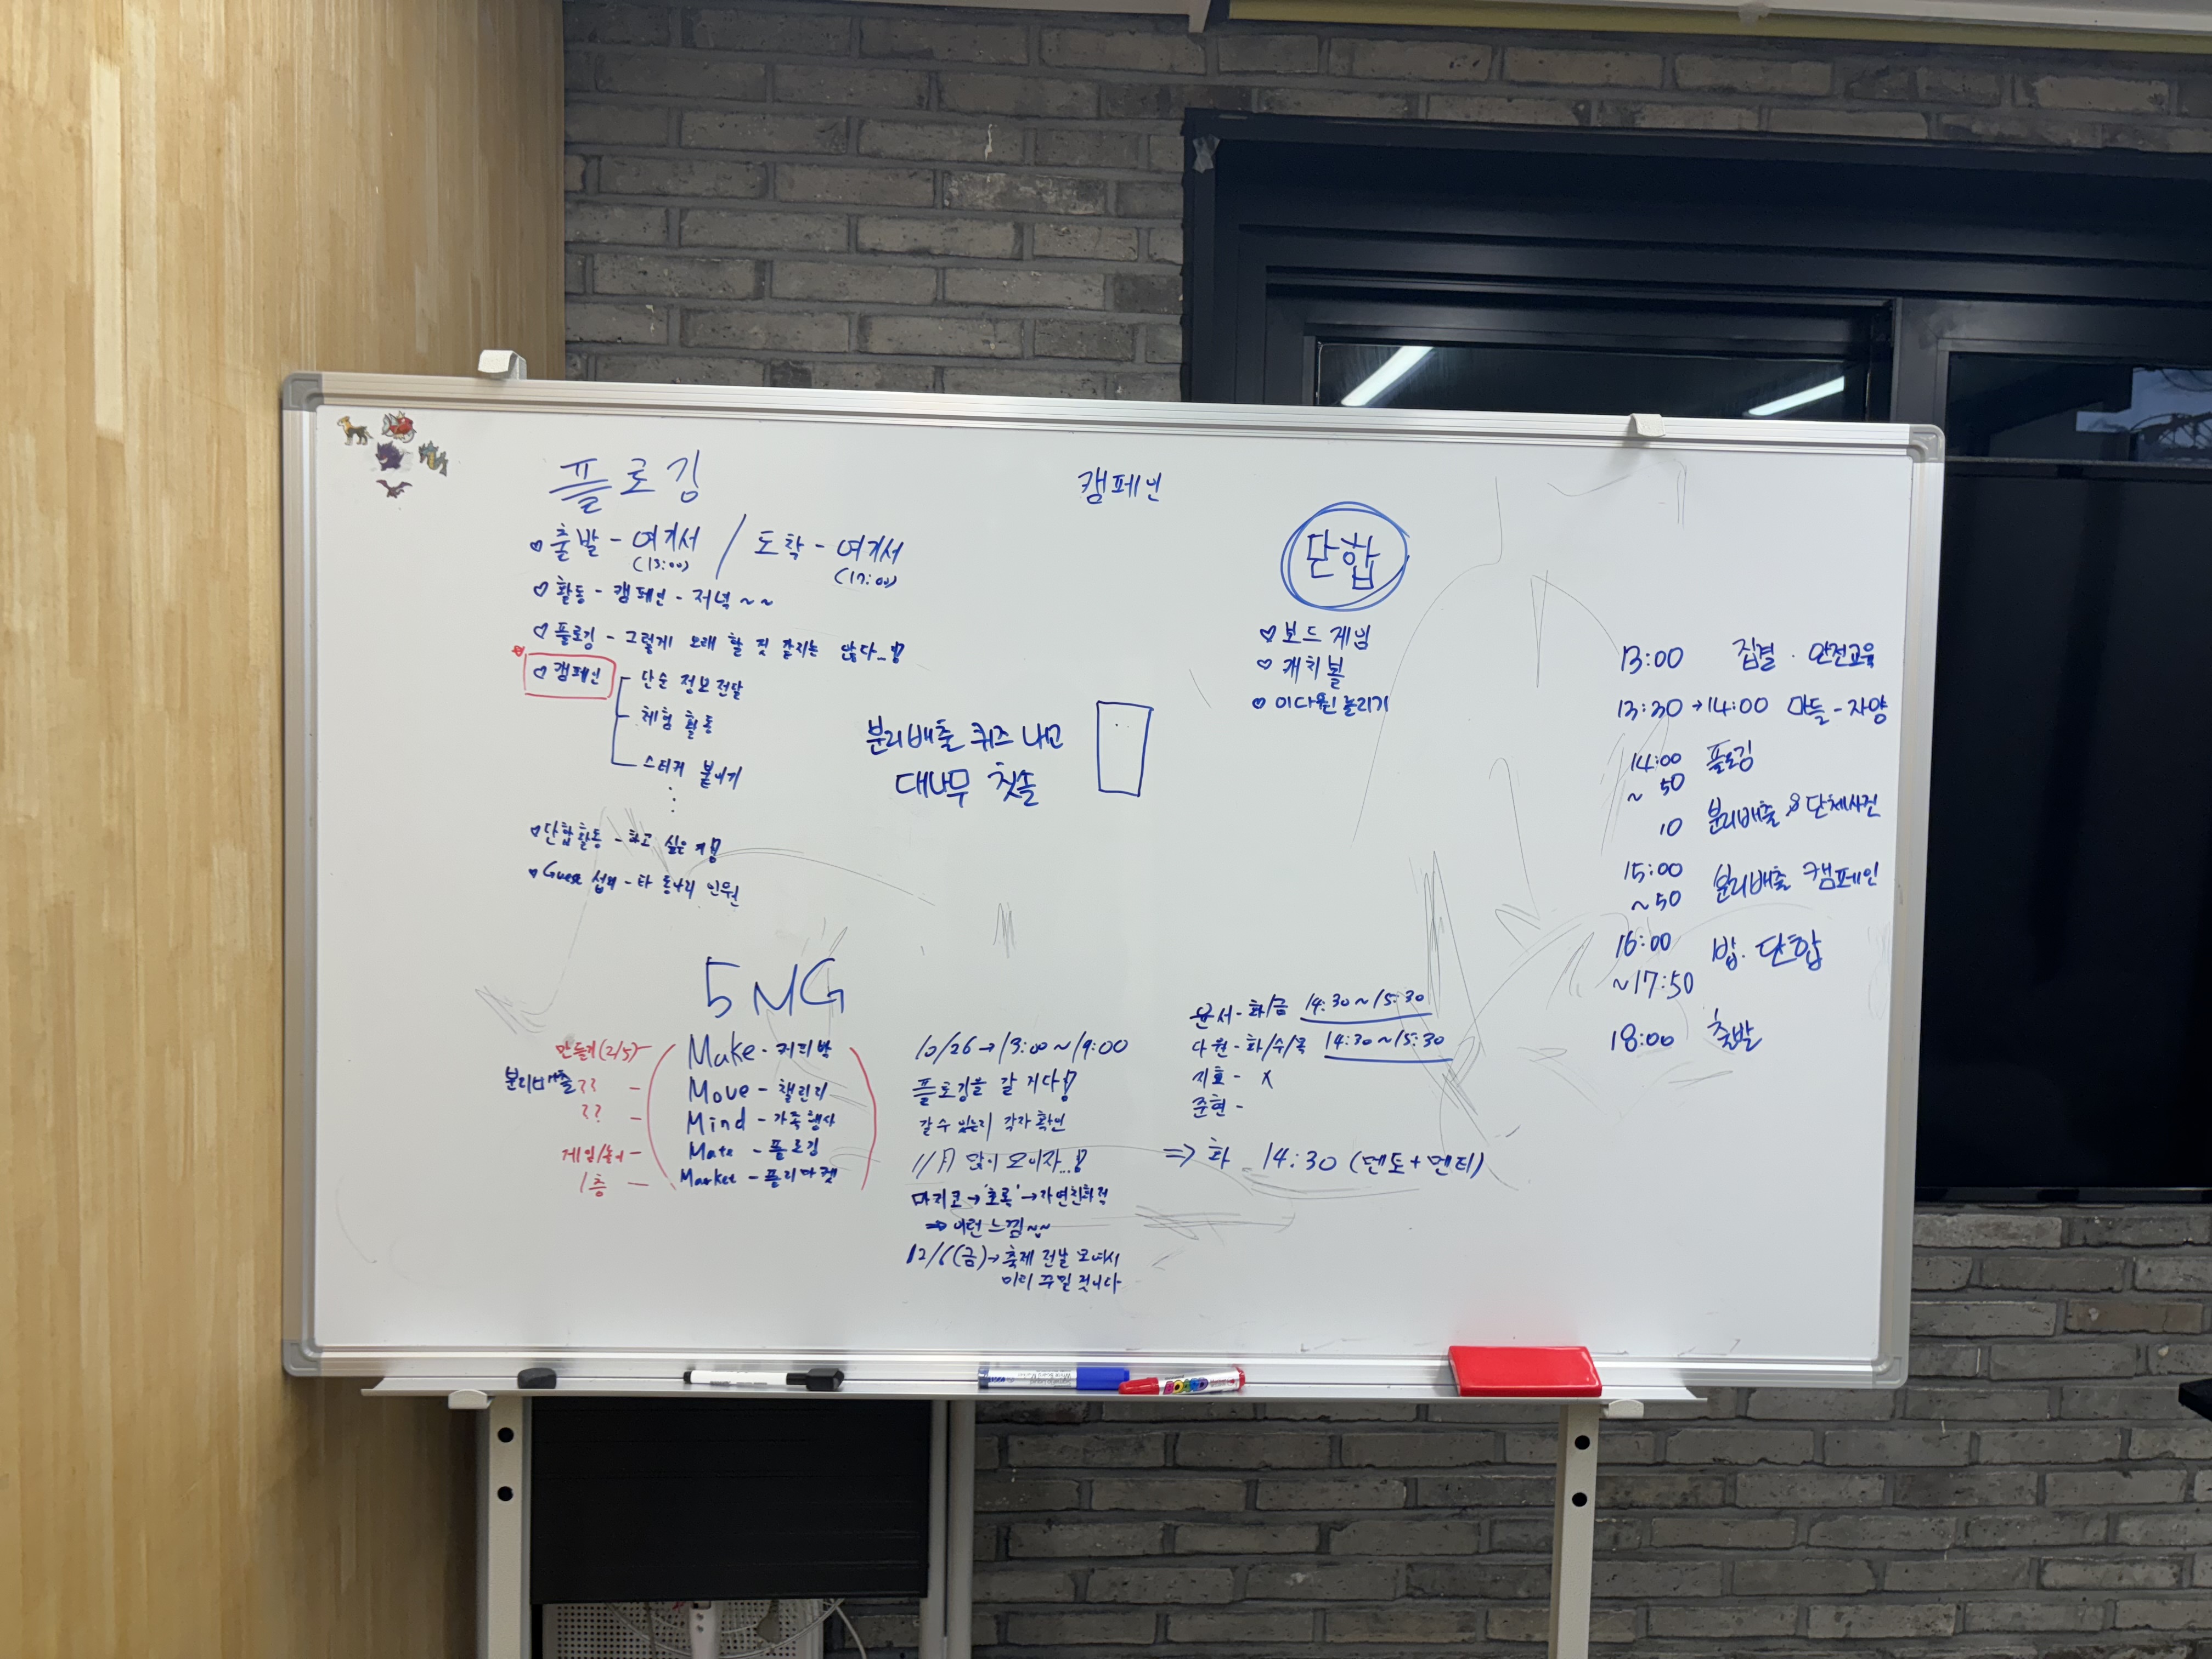 플로깅
캠페인
출발 - 여기서 / 도착 - 여기서
(13:00) (17:00)
활동 - 캠페인 - 저녁 ~ ~
플로깅 - 그렇게 오래 할 것 같지는 않다..!
캠페인
단순 정보 전달
체험 활동
스티커 붙이기
단합활동 - 하고 싶은 거!
Guest 섭외 - 타 동아리 인원
분리배출 퀴즈 내고
대나무 칫솔
단합
보드 게임
캐치볼
이다원 놀리기
13:00 집결 · 안전교육
13:30 → 14:00 마들 - 자양
14:00 플로깅
~ 50
10 분리배출 & 단체사진
15:00 분리배출 캠페인
~ 50
16:00 밥. 단합
~17:50
18:00 출발
5 MG
만들기(2/5) - Make - 커피박
분리배출?? - Move - 챌린지
?? - Mind - 가족행사
게임/놀이 - Mate - 플로깅
1층 - Market - 플리마켓
10/26 → 13:00 ~ 19:00
플로깅을 갈 거다!
갈 수 있는지 각자 확인
11月 많이 모이자...!
마지코 → '초록' → 자연친화적
⇒ 이런 느낌~~
12/6(금) → 축제 전날 모여서
미리 꾸밀 것이다
윤서 - 화/금 14:30 ~ 15:30
다원 - 화/수/목 14:30 ~ 15:30
지호 - X
준현 -
⇒ 화 14:30 (멘토 + 멘티)
BOARD